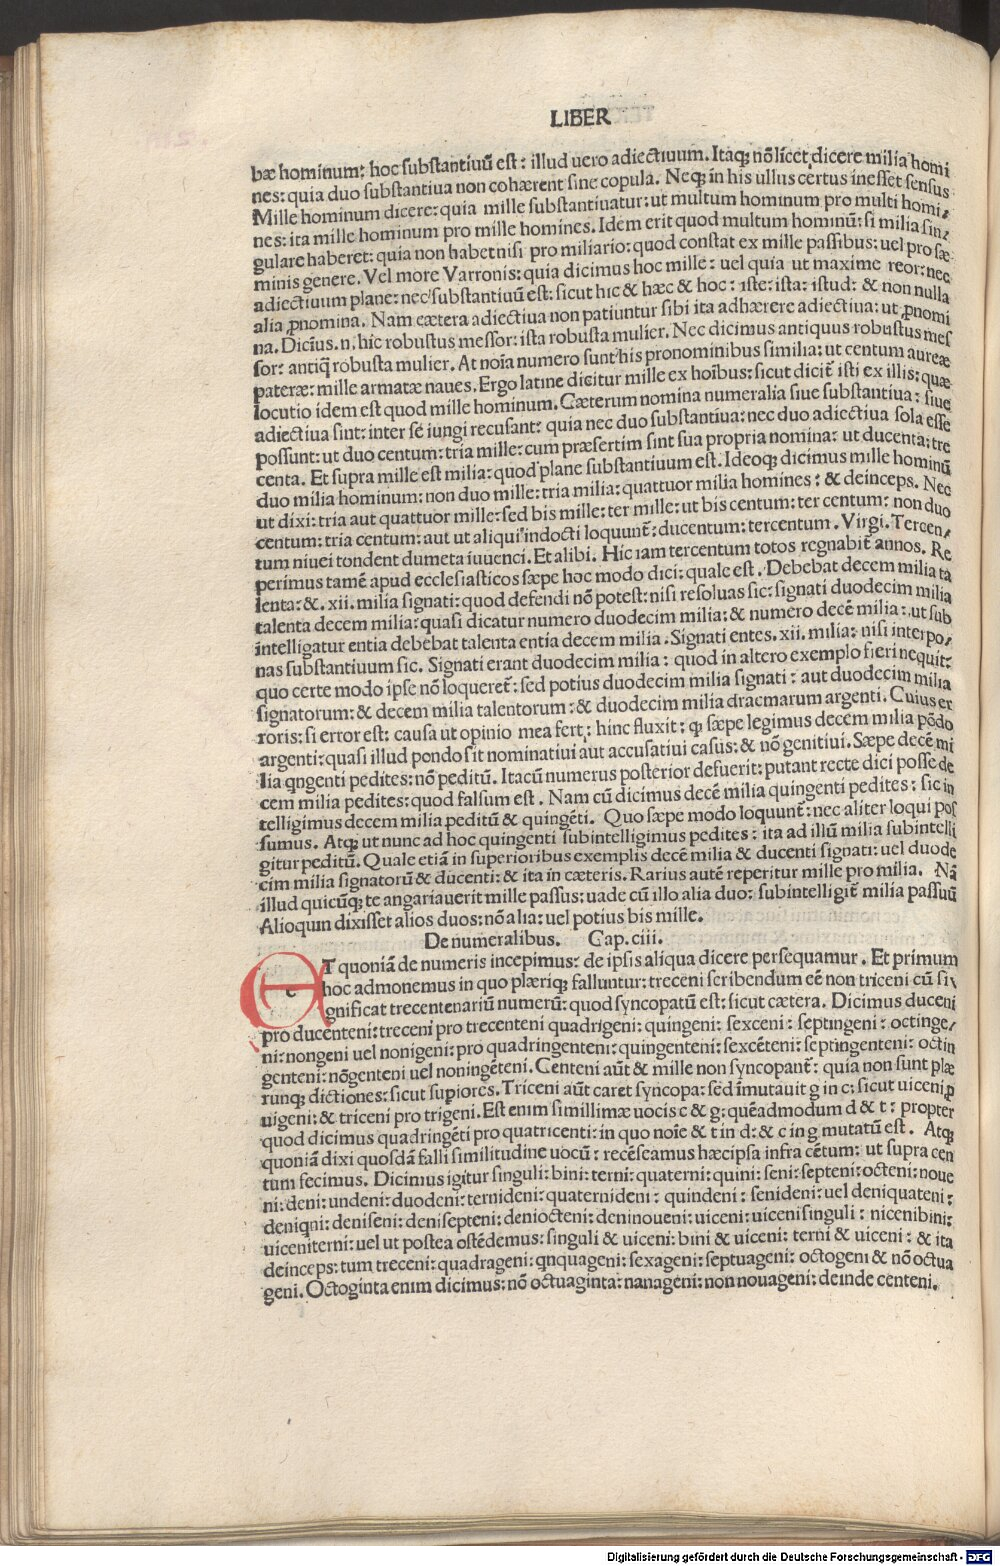 LIBER
bæ hominum: hoc substantiuū est: illud uero adiectiuum. Itaqꝫ nō licet dicere milia homi
nes: quia duo substantiua non cohærent sine copula. Neqꝫ in his ullus certus inesset sensus
Mille hominum dicere: quia mille substantiuatur: ut multum hominum pro multi homi⸗
nes: ita mille hominum pro mille homines. Idem erit quod multum hominū: si milia sin⸗
gulare haberet: quia non habet nisi pro miliario: quod constat ex mille passibus: uel pro fœ
minis genere. Vel more Varronis: quia dicimus hoc mille: uel quia ut maxime reor: nec
adiectiuum plane: nec substantiuū est: sicut hic & hæc & hoc: iste: ista: istud: & non nulla
alia ꝓnomina. Nam cætera adiectiua non patiuntur sibi ita adhærere adiectiua: ut ꝓnomi
na. Diciūs. n. hic robustus messor: ista robusta mulier. Nec dicimus antiquus robustus mes
sor: antiq̄ robusta mulier. At noīa numero sunt his pronominibus similia: ut centum aureæ
pateræ: mille armatæ naues. Ergo latine dicitur mille ex hoībus: sicut dicit̄ isti ex illis: quæ
locutio idem est quod mille hominum. Cæterum nomina numeralia siue substantiua: siue
adiectiua sint: inter se iungi recusant: quia nec duo substantiua: nec duo adiectiua sola esse
possunt: ut duo centum: tria mille: cum præsertim sint sua propria nomina: ut ducenta: tre
centa. Et supra mille est milia: quod plane substantiuum est. Ideoqꝫ dicimus mille hominū
duo milia hominum: non duo mille: tria milia: quattuor milia homines: & deinceps. Nec
ut dixi: tria aut quattuor mille: sed bis mille: ter mille: ut bis centum: ter centum: non duo
centum: tria centum: aut ut aliqui indocti loquunt̄: ducentum: tercentum. Virgi. Tercen⸗
tum niuei tondent dumeta iuuenci. Et alibi. Hic iam tercentum totos regnabit̄ annos. Re
perimus tamē apud ecclesiasticos sæpe hoc modo dici: quale est. Debebat decem milia ta
lenta: &. xii. milia signati: quod defendi nō potest: nisi resoluas sic: signati duodecim milia
talenta decem milia: quasi dicatur numero duodecim milia: & numero decē milia: ut sub
intelligatur entia debebat talenta entia decem milia. Signati entes. xii. milia: nisi interpo⸗
nas substantiuum sic. Signati erant duodecim milia: quod in altero exemplo fieri nequit:
quo certe modo ipse nō loqueret̄: sed potius duodecim milia signati: aut duodecim milia
signatorum: & decem milia talentorum: & duodecim milia dracmarum argenti. Cuius er
roris: si error est: causa ut opinio mea fert: hinc fluxit: ꝙ sæpe legimus decem milia pōdo
argenti: quasi illud pondo sit nominatiui aut accusatiui casus: & nō genitiui. Sæpe decē mi
lia qngenti pedites: nō peditū. Itacū numerus posterior defuerit: putant recte dici posse de
cem milia pedites: quod falsum est. Nam cū dicimus decē milia quingenti pedites: sic in
telligimus decem milia peditū & quingēti. Quo sæpe modo loquunt̄: nec aliter loqui pos
sumus. Atqꝫ ut nunc ad hoc quingenti subintelligimus pedites: ita ad illū milia subintelli
gitur peditū. Quale etiā in superioribus exemplis decē milia & ducenti signati: uel duode
cim milia signatorū & ducenti: & ita in cæteris. Rarius autē reperitur mille pro milia. Nā
illud quicūqꝫ te angariauerit mille passus: uade cū illo alia duo: subintelligit̄ milia passuū
Alioquin dixisset alios duos: nō alia: uel potius bis mille.
De numeralibus. Cap. ciii.
ET quoniā de numeris incepimus: de ipsis aliqua dicere persequamur. Et primum
hoc admonemus in quo plæriqꝫ falluntur: treceni scribendum eē non triceni cū si⸗
gnificat trecentenariū numerū: quod syncopatū est: sicut cætera. Dicimus duceni
pro ducenteni: treceni pro trecenteni quadrigeni: quingeni: sexceni: septingeni: octinge⸗
ni: nongeni uel nonigeni: pro quadringenteni: quingenteni: sexcēteni: septingenteni: octin
genteni: nōgenteni uel noningēteni. Centeni aūt & mille non syncopant̄: quia non sunt plæ
runqꝫ dictiones: sicut supiores. Triceni aūt caret syncopa: sed īmutauit g in c: sicut uiceni ꝓ
uigeni: & triceni pro trigeni. Est enim simillimæ uocis c & g: quēadmodum d & t: propter
quod dicimus quadringēti pro quatricenti: in quo noīe & t in d: & c in g mutatū est. Atqꝫ
quoniā dixi quosdā falli similitudine uocū: recēseamus hæc ipsa infra cētum: ut supra cen
tum fecimus. Dicimus igitur singuli: bini: terni: quaterni: quini: seni: septeni: octeni: noue
ni: deni: undeni: duodeni: ternideni: quaternideni: quindeni: senideni: uel deniquateni:
deniqni: deniseni: denisepteni: deniocteni: deninoueni: uiceni: uicenisinguli: nicenibini:
uiceniterni: uel ut postea ostēdemus: singuli & uiceni: bini & uiceni: terni & uiceni: & ita
deinceps: tum treceni: quadrageni: qnquageni: sexageni: septuageni: octogeni & nō octua
geni. Octoginta enim dicimus: nō octuaginta: nanageni: non nouageni: deinde centeni.
Digitalisierung gefördert durch die Deutsche Forschungsgemeinschaft - DFG